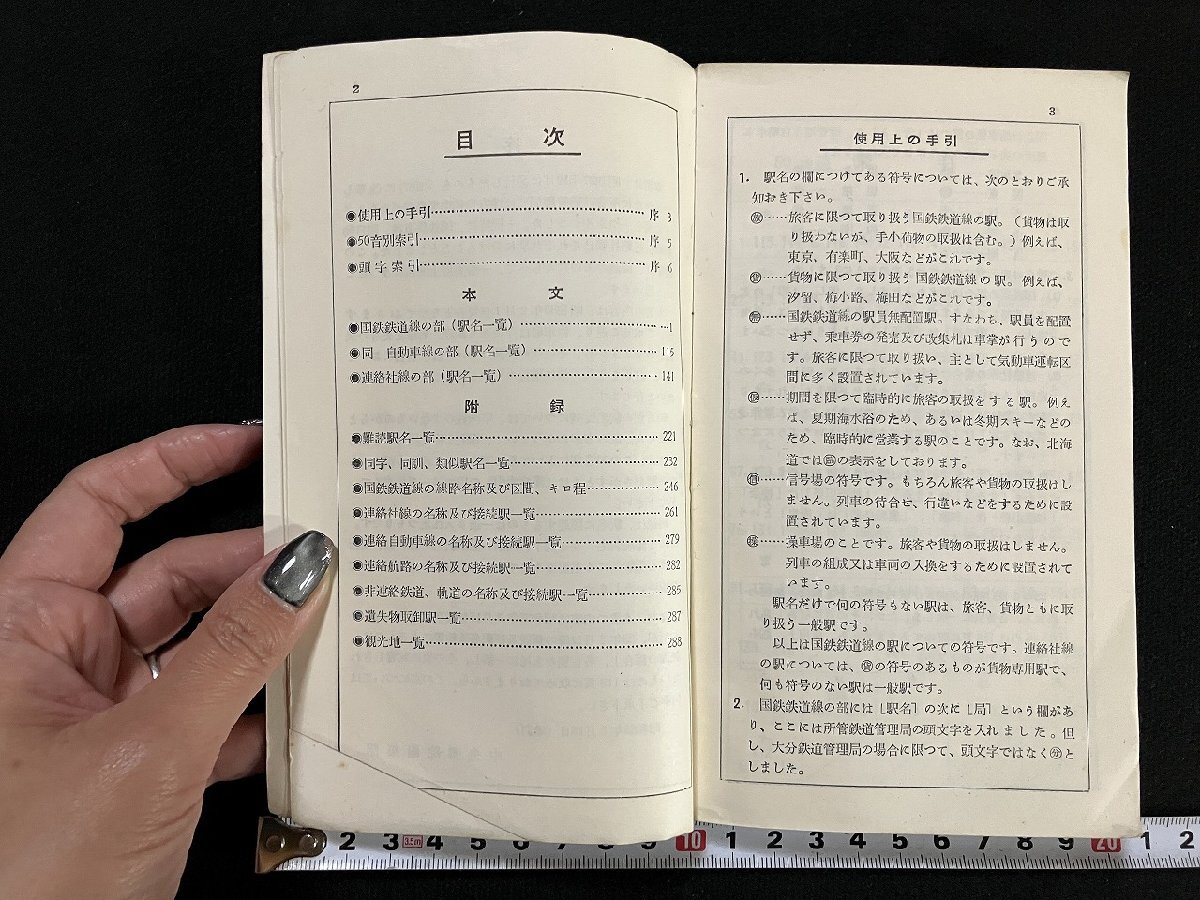 2
目次
◉使用上の手引……序 3
◉50音別索引……序 5
◉頭字索引……序 6
本文
◉国鉄鉄道線の部（駅名一覧）……1
◉同 自動車線の部（駅名一覧）
◉連絡社線の部（駅名一覧）……141
附録
◉難読駅名一覧……221
◉同字、同訓、類似駅名一覧……232
◉国鉄鉄道線の線路名称及び区間、キロ程……246
◉連絡社線の名称及び接続駅一覧……261
◉連絡自動車線の名称及び接続駅一覧……279
◉連絡航路の名称及び接続駅一覧……282
◉非連絡鉄道、軌道の名称及び接続駅一覧……285
◉遺失物取卸駅一覧……287
◉観光地一覧……288
3
使用上の手引
1. 駅名の欄につけてある符号については、次のとおりご承
知おき下さい。
㊊……旅客に限つて取り扱う国鉄鉄道線の駅。（貨物は取
り扱わないが、手小荷物の取扱は含む。）例えば、
東京、有楽町、大阪などがこれです。
……貨物に限つて取り扱う国鉄鉄道線の駅。例えば、
汐留、梅小路、梅田などがこれです。
……国鉄鉄道線の駅員無配置駅。すなわち、駅員を配置
せず、乗車券の発売及び改集札は車掌が行うので
す。旅客に限つて取り扱い、主として気動車運転区
間に多く設置されています。
……期間を限つて臨時的に旅客の取扱をする駅。例え
ば、夏期海水浴のため、あるいは冬期スキーなどの
ため、臨時的に営業する駅のことです。なお、北海
道ではの表示をしております。
……信号場の符号です。もちろん旅客や貨物の取扱はし
ません。列車の待合せ、行違いなどをするために設
置されています。
……操車場のことです。旅客や貨物の取扱はしません。
列車の組成又は車両の入換をするために設置されて
います。
駅名だけで何の符号もない駅は、旅客、貨物ともに取
り扱う一般駅です。
以上は国鉄鉄道線の駅についての符号です、連絡社線
の駅については、の符号のあるものが貨物専用駅で、
何も符号のない駅は一般駅です。
2. 国鉄鉄道線の部には［駅名］の次に［局］という欄があ
り、ここには所管鉄道管理局の頭文字を入れました。但
し、大分鉄道管理局の場合に限つて、頭文字ではなく分と
しました。
2 3 3.5cm 4 5 6 7 8 9 10 1 2 3 4 5 6 7 8 9 20 1 2